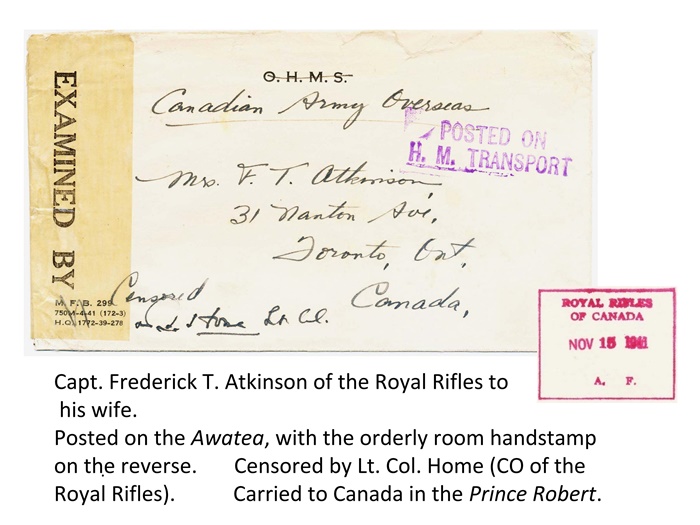 EXAMINED BY
M. F. B. 299
750M-4-41 (172-3)
H.Q. 1772-39-278
O. H. M. S.
Canadian Army Overseas
POSTED ON
H. M. TRANSPORT
Mrs. F. T. Atkinson,
31 Nanton Ave,
Toronto, Ont,
Canada,
Censored
Home Lt Col.
ROYAL RIFLES
OF CANADA
NOV 15 1941
A. F.
Capt. Frederick T. Atkinson of the Royal Rifles to
his wife.
Posted on the Awatea, with the orderly room handstamp
on the reverse. Censored by Lt. Col. Home (CO of the
Royal Rifles). Carried to Canada in the Prince Robert.